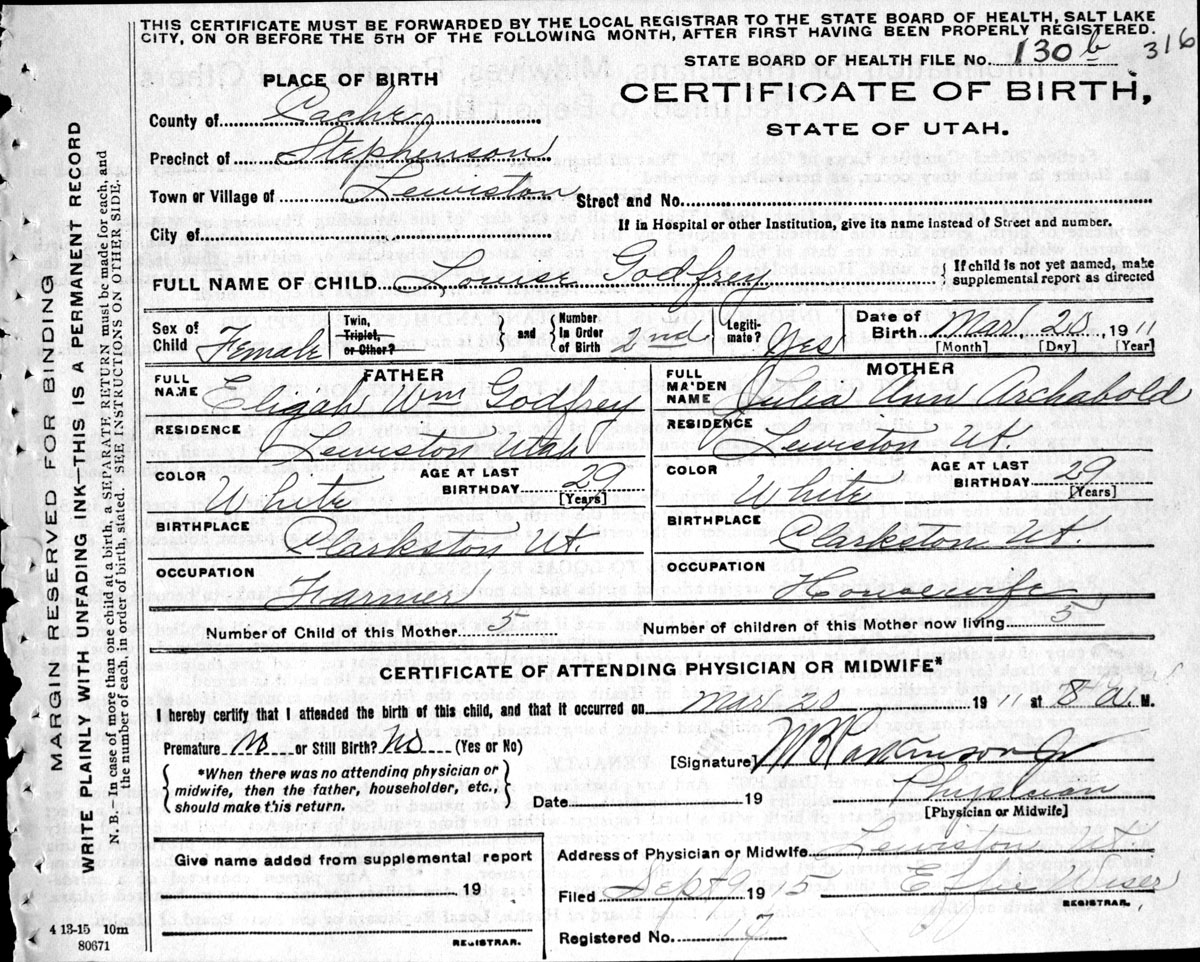 THIS CERTIFICATE MUST BE FORWARDED BY THE LOCAL REGISTRAR TO THE STATE BOARD OF HEALTH, SALT LAKE
CITY, ON OR BEFORE THE 5TH OF THE FOLLOWING MONTH, AFTER FIRST HAVING BEEN PROPERLY REGISTERED.
STATE BOARD OF HEALTH FILE No. 130 b 316
PLACE OF BIRTH
CERTIFICATE OF BIRTH,
STATE OF UTAH.
County of Cache
Precinct of Stephenson
Town or Village of Lewiston Street and No.
City of If in Hospital or other Institution, give its name instead of Street and number.
FULL NAME OF CHILD Louise Godfrey { If child is not yet named, make
supplemental report as directed
Sex of Child Female Twin, Triplet, or Other? } and { Number in Order of Birth 2nd Legiti-mate? Yes Date of Birth Mar 1911
[Month] [Day] [Year]
FATHER MOTHER
FULL NAME Elijah Wm Godfrey FULL MAIDEN NAME Julia Ann Archabold
RESIDENCE Lewiston Utah RESIDENCE Lewiston Ut.
COLOR White AGE AT LAST BIRTHDAY 29 [Years] COLOR White AGE AT LAST BIRTHDAY 29 [Years]
BIRTHPLACE Clarkston Ut. BIRTHPLACE Clarkston Ut.
OCCUPATION Farmer OCCUPATION Housewife
Number of Child of this Mother 5 Number of children of this Mother now living 5
CERTIFICATE OF ATTENDING PHYSICIAN OR MIDWIFE*
I hereby certify that I attended the birth of this child, and that it occurred on Mar 1911 at 8 a. M.
Premature No or Still Birth? No (Yes or No)
[Signature] Parkinson Jr
{ *When there was no attending physician or
midwife, then the father, householder, etc.,
should make this return. }
Date 19 Physician
[Physician or Midwife]
Give name added from supplemental report
19
REGISTRAR.
Address of Physician or Midwife Lewiston Ut.
Filed Sept 9 1915 Effie Wiser
REGISTRAR.
Registered No. 17
4 13-15 10m
80671
MARGIN RESERVED FOR BINDING
WRITE PLAINLY WITH UNFADING INK—THIS IS A PERMANENT RECORD
N. B. In case of more than one child at a birth, a SEPARATE RETURN must be made for each, and
the number of each, in order of birth, stated. SEE INSTRUCTIONS ON OTHER SIDE.